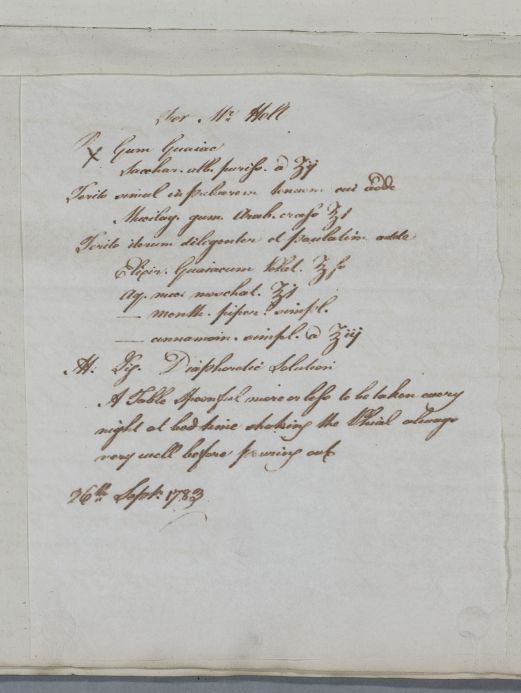 For Mr. Holl
℞ Gum Guaiac
Sacchar. alb. puriss. a ʒij
Terito simul in pulverem tenuem cui adde
Mucilag. gum Arab. crasso ℥i
Terito iterum diligenter et paulatim adde
Elixir. Guaiacum Volat. ℥ss
Aq. nuc. moschat. ℥i
— menth. piper. simpl.
— cinnamom. simpl. a ℥iij
M. Sig. Diaphoretic Solution
A Table Spoonful more or less to be taken every
night at bed time shaking the Phial always
very well before pouring out
26th Sept. 1783